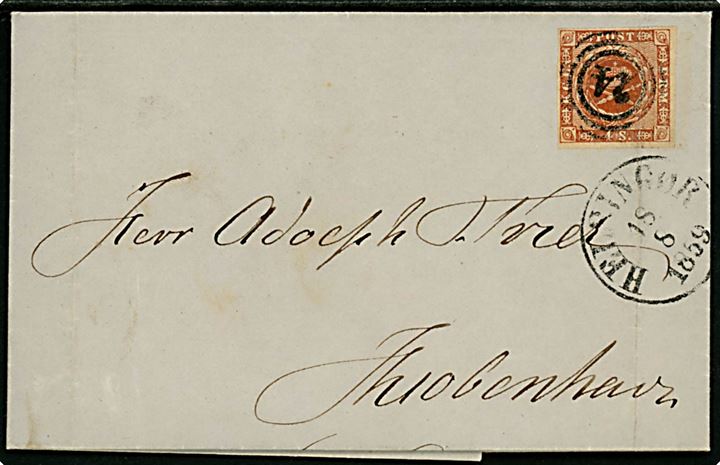 POST
24
4 S.
HELSINGØR
18
8
1859
Herr Adolph Trier
Kjøbenhavn